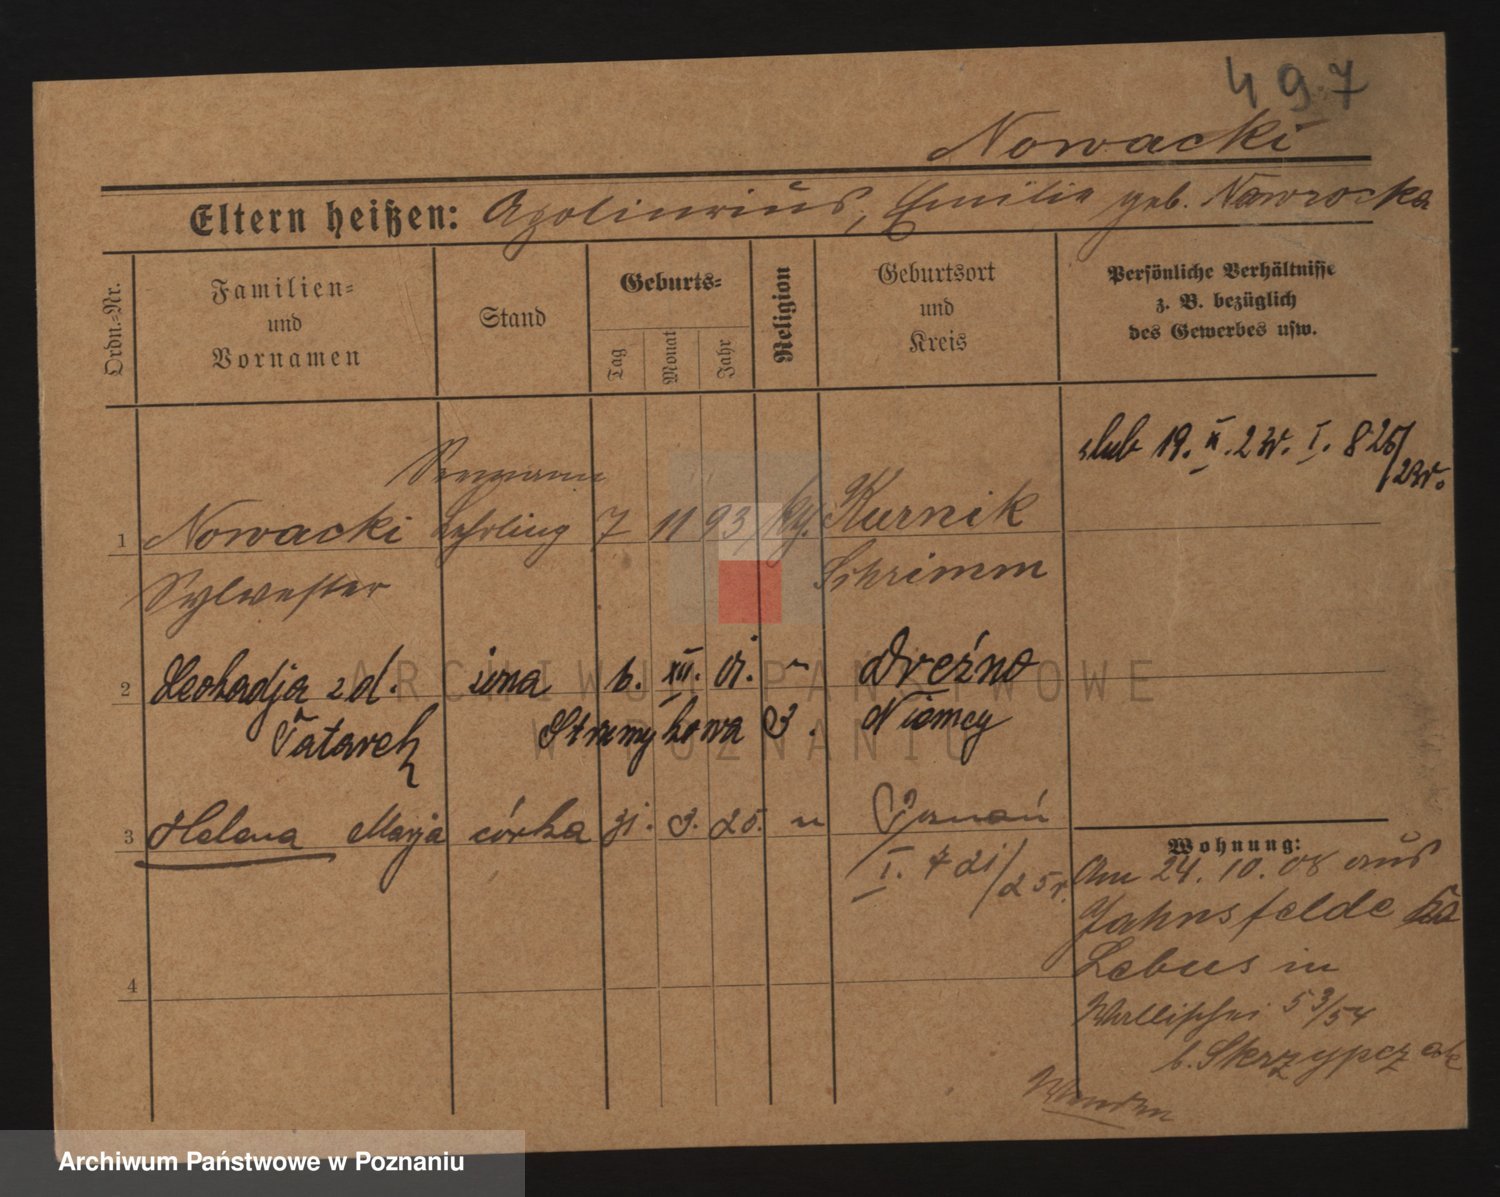 497
Nowacki
Eltern heißen: Apolinarius, Emilie geb. Nawrocka
Ordn.-Nr.
Familien- und Vornamen
Stand
Geburts-
Tag
Monat
Jahr
Religion
Geburtsort und Kreis
Persönliche Verhältnisse z. B. bezüglich des Gewerbes usw.
ślub 19. II. 23r. I. 825/23r.
1 Nowacki Lehrling 7 11 93 kg. Kurnik
Sylwester Schrimm
2 Leokadja zd. żona 6. XII. 01. Drezno
Tatarek Strumykowa 3. Niemcy
3 Helena Marja córka 31. 3. 25. Poznań
I. 721/25r.
4
Wohnung:
Am 24. 10. 08 aus
Jahnsfelde
Lebus in
Wallischei 53/54
b. Skrzypczak
Wenden
ARCHIWUM PAŃSTWOWE
W POZNANIU
Archiwum Państwowe w Poznaniu